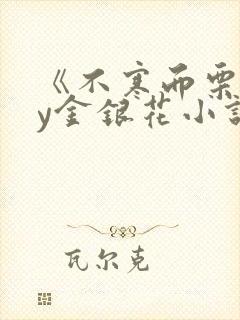 《不寒而栗
y金银花小说
瓦尔克